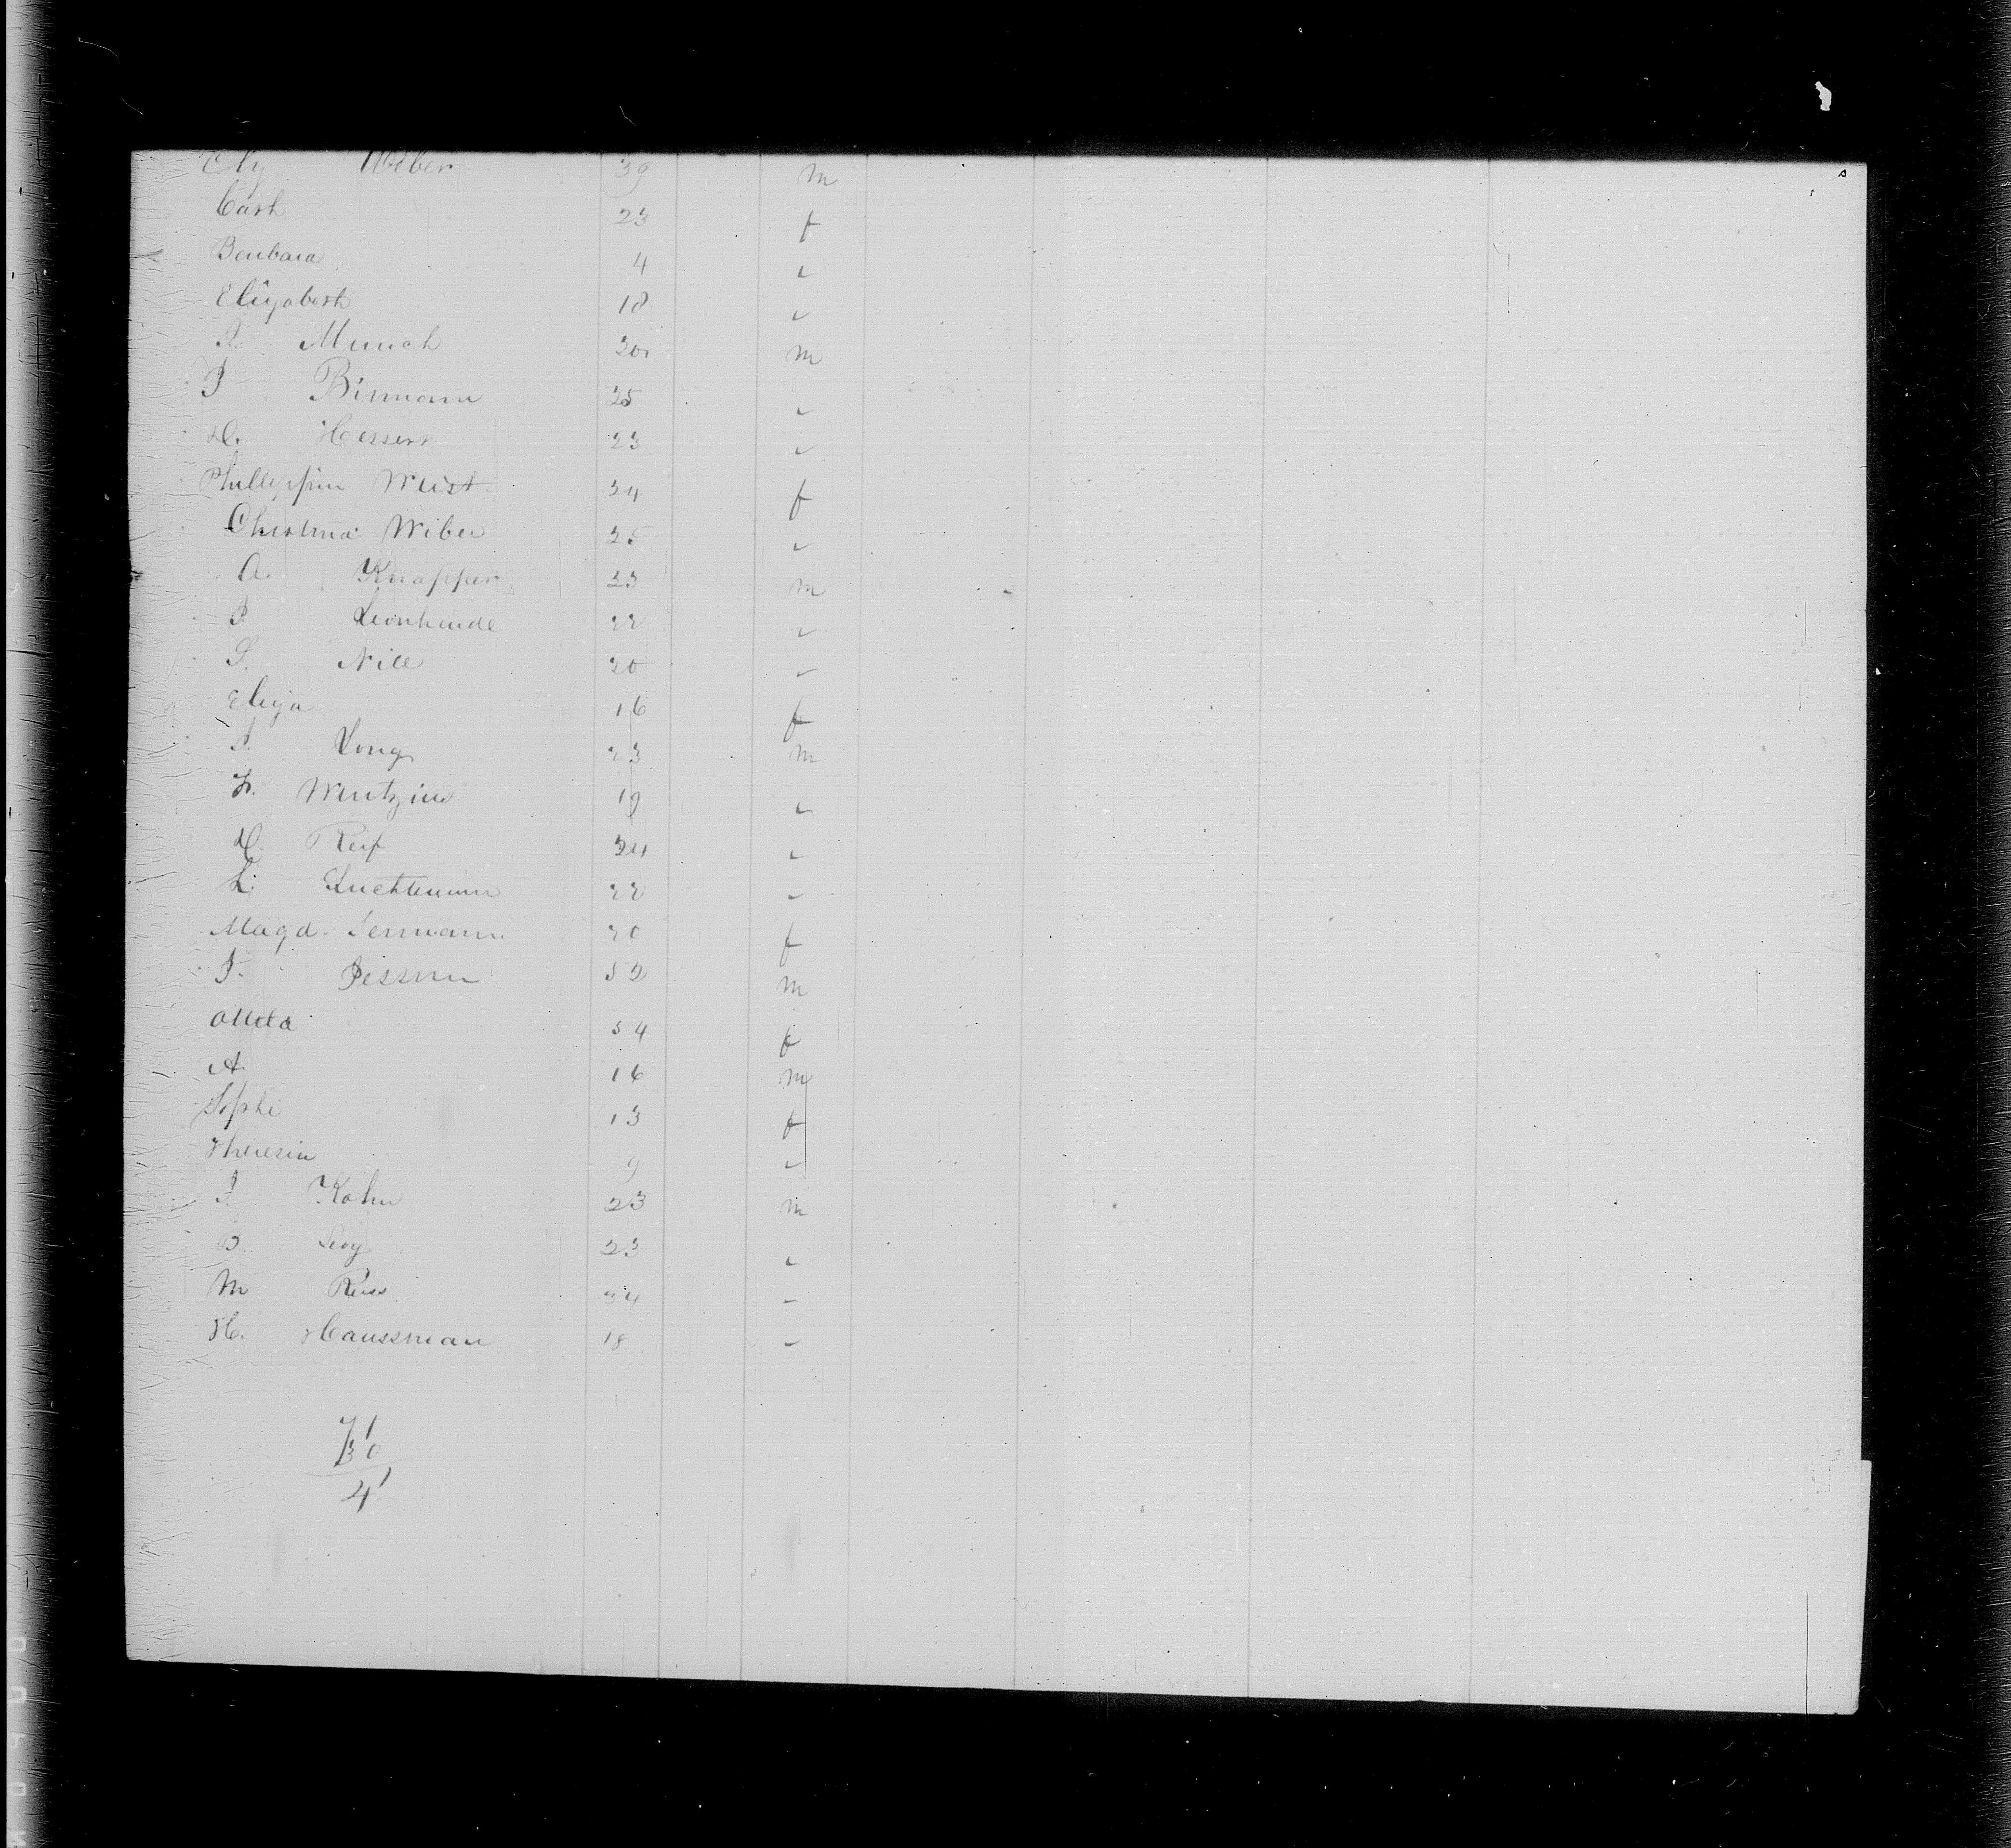 Ely Weber 39 m
Cath 23 f
Barbara 4 "
Elizabeth 18 "
Munch 20 m
J Birmann 25 "
Hessert 23 "
Philleppine Wüst 24 f
Christina Wiber 25 "
A. Knapper 23 m
P Leonhardt 22 "
S. Nill 20 "
Eliza 16 f
J. Long 23 m
Fr. Wentzien 19 "
D. Reif 24 "
L. 22 "
Magd. 20 f
J. 52 m
54 f
A. 16 m
Sophi 13 f
Theresia 9 "
J Kohn 23 m
B Levy 23 "
M Reus 34 "
H. Haussman 18 "
71
30
41